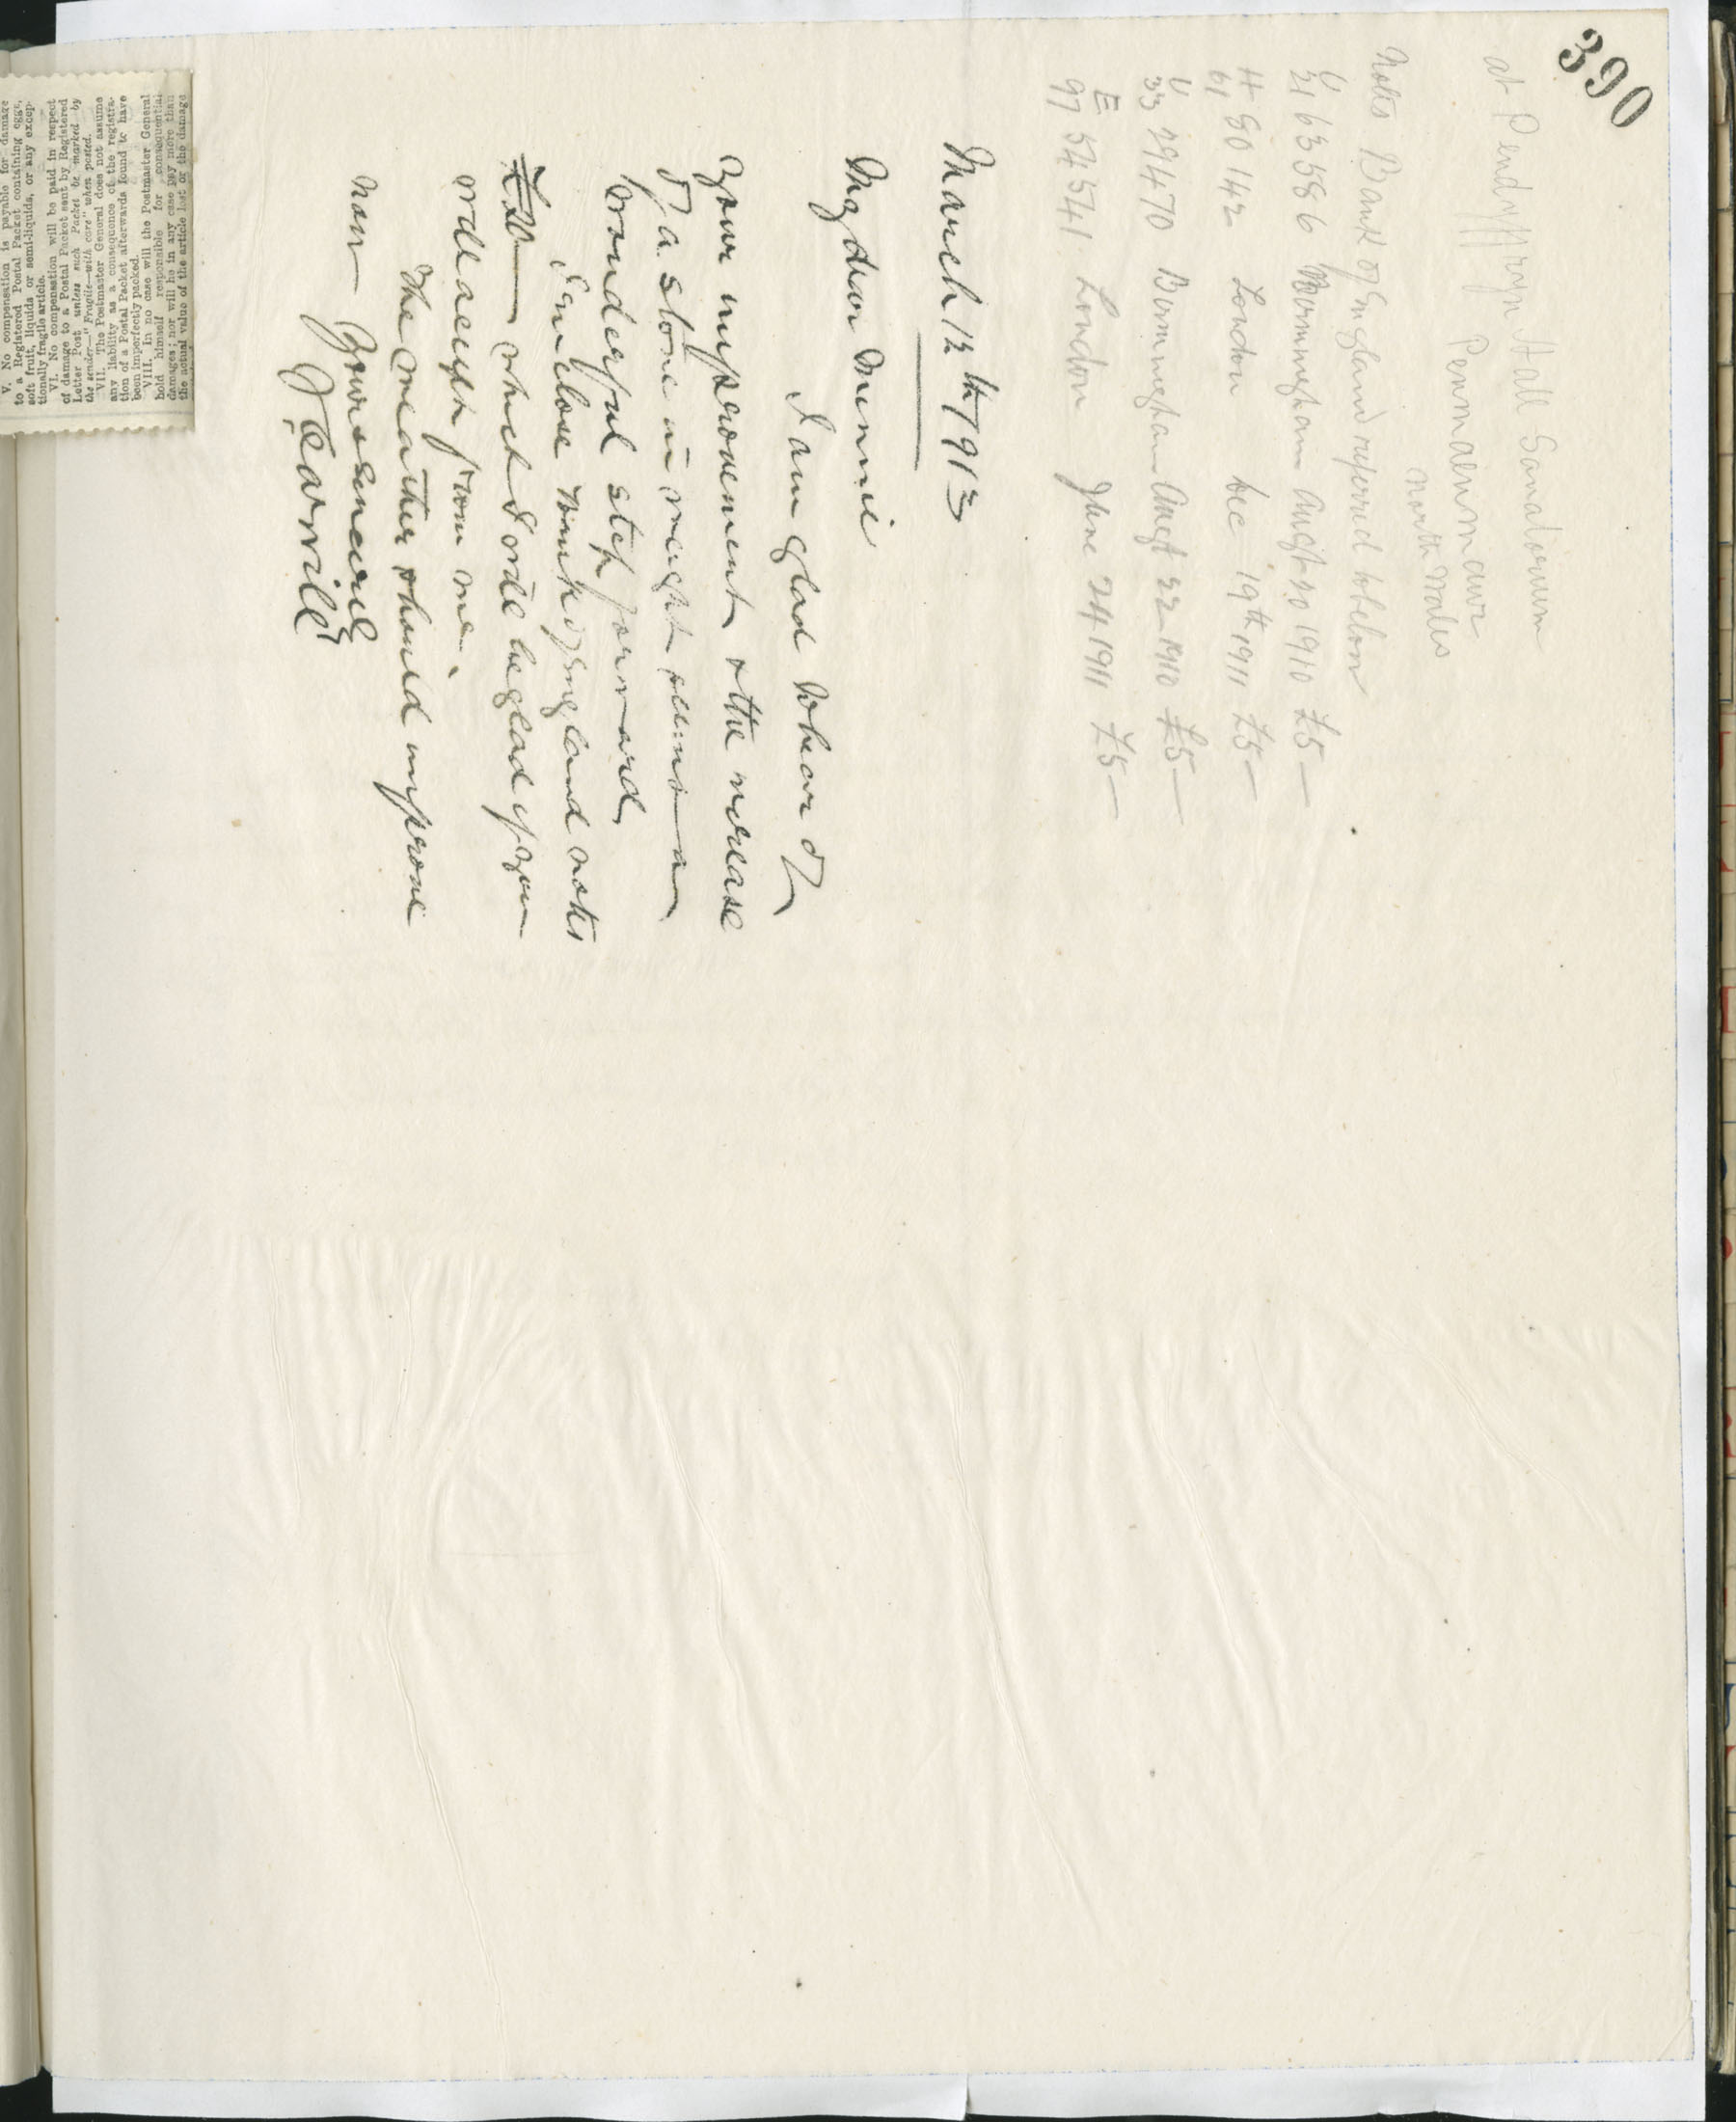 390
at Pendyffryn Hall Sanatorium
Penmaenmawr
North Wales
Notes Bank of England referred to below
U
21 63586 Birmingham Augt 20 1910 £5—
H
61 80142 London Dec 19th 1911 £5—
U
33 29470 Birmingham Augt 22 1910 £5—
E
97 54541 London June 24 1911 £5—
March 12th 1913
My dear Minnie
I am glad to hear of
your improvement & the increase
of a stone in weight seems a
wonderful step forward,
I enclose Bank of England notes
£20— which I will be glad if you
will accept from me.
The weather should improve
now Yours sincerely
J Earvill
V. No compensation is payable for damage
to a Registered Postal Packet containing eggs,
soft fruit, liquids or semi-liquids, or any excep-
tionally fragile article.
VI. No compensation will be paid in respect
of damage to a Postal Packet sent by Registered
Letter Post unless such Packet be marked by
the sender—"Fragile—with care" when posted.
VII. The Postmaster General does not assume
any liability as a consequence of the registra-
tion of a Postal Packet afterwards found to have
been imperfectly packed.
VIII. In no case will the Postmaster General
hold himself responsible for consequential
damages; nor will he in any case pay more than
the actual value of the article lost or the damage